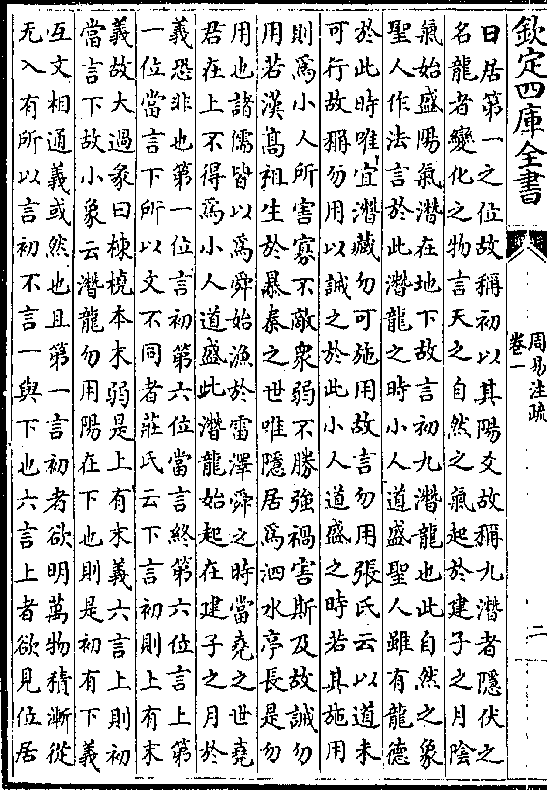 欽定四庫全書
周易注疏
卷一
二
日居第一之位故稱初以其陽爻故稱九潛者隱伏之
名龍者變化之物言天之自然之氣起於建子之月陰
氣始盛陽氣潛在地下故言初九潛龍也此自然之象
聖人作法言於此潛龍之時小人道盛聖人雖有龍德
於此時唯宜潛藏勿可施用故言勿用張氏云以道未
可行故稱勿用以誡之於此小人道盛之時若其施用
則為小人所害寡不敵衆弱不勝強禍害斯及故誡勿
用若漢髙祖生於暴秦之世唯隱居為泗水亭長是勿
用也諸儒皆以為舜始漁於雷澤舜之時當堯之世堯
君在上不得為小人道盛此潛龍始起在建子之月於
義恐非也第一位言初第六位當言終第六位言上第
一位當言下所以文不同者莊氏云下言初則上有末
義故大過彖曰棟橈本末弱是上有末義六言上則初
當言下故小象云潛龍勿用陽在下也則是初有下義
互文相通義或然也且第一言初者欲明萬物積漸從
无入有所以言初不言一與下也六言上者欲見位居